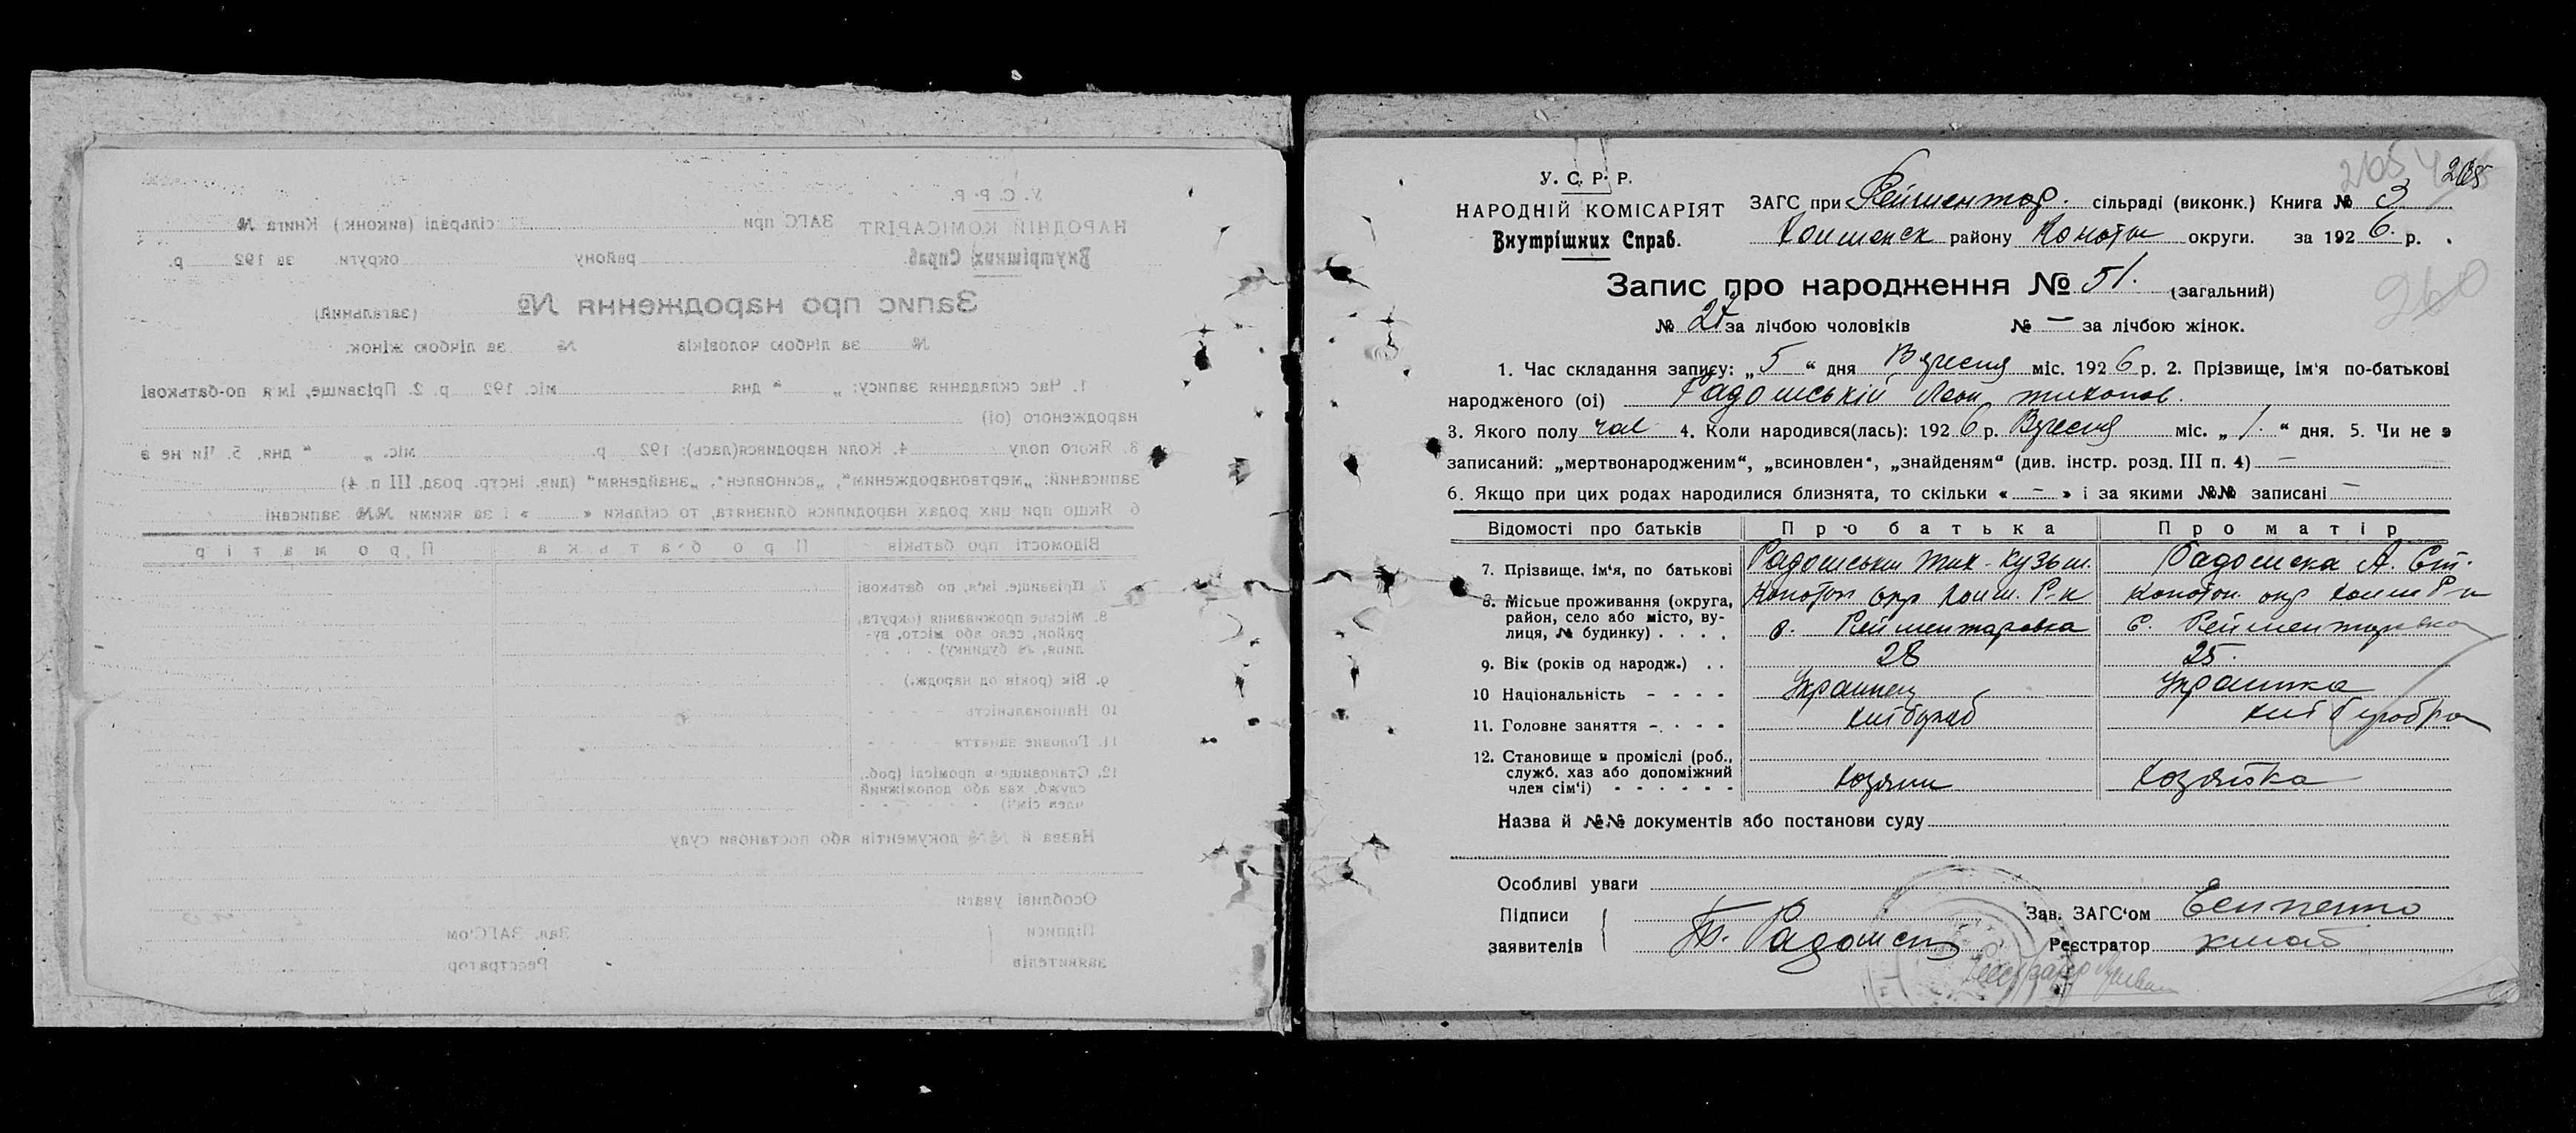 У. С. Р. Р.
НАРОДНІЙ КОМІСАРІЯТ
Внутрішних Справ.
205 205
ЗАГС при Рейментар. сільраді (виконк.) Книга № 3
района Конотоп округи. за 192 6. р.
Запис про народження № 51. (загальний)
260
№ за лічбою чоловіків № — за лічбою жінок.
1. Час складання запису: „ 5 “ дня Вересня міс. 192 6 р. 2. Прізвище, ім'я по-батькові
народженого (ої) Радомський Леон. тихонов.
3. Якого полу чол 4. Коли народився(лась): 192 6 р. Вересня міс. „ 1. “ дня. 5. Чи не э
записаний: „мертвонародженим“, „всиновлен“, „знайденям“ (див. інстр. розд. III п. 4) —
6. Якщо при цих родах народилися близнята, то скільки « — » і за якими №№ записані —
Відомості про батьків Про батька Про матір
7. Прізвище, ім'я, по батькові Радомськи Тих. Кузьм. Радомска А. Ст.
8. Місьце проживання (округа, район, село або місто, вулиця, № будинку) . . . . Конотоп окр Р-н Конотоп. окр Р-н
с. Рейментаровка с. Рейментаровка
9. Вік (років од народж.) . . 28 25.
10 Національність - - - - Украинец Украинка
11. Головне заняття - - - - хлібороб хлібороб
12. Становище в проміслі (роб., служб. хаз або допоміжний член сім'ї) - - - - - - хозяин хозяйка
Назва й №№ документів або постанови суду
Особливі уваги
Підписи
заявителів
Т. Радомск
Зав. ЗАГС'ом
Реєстратор